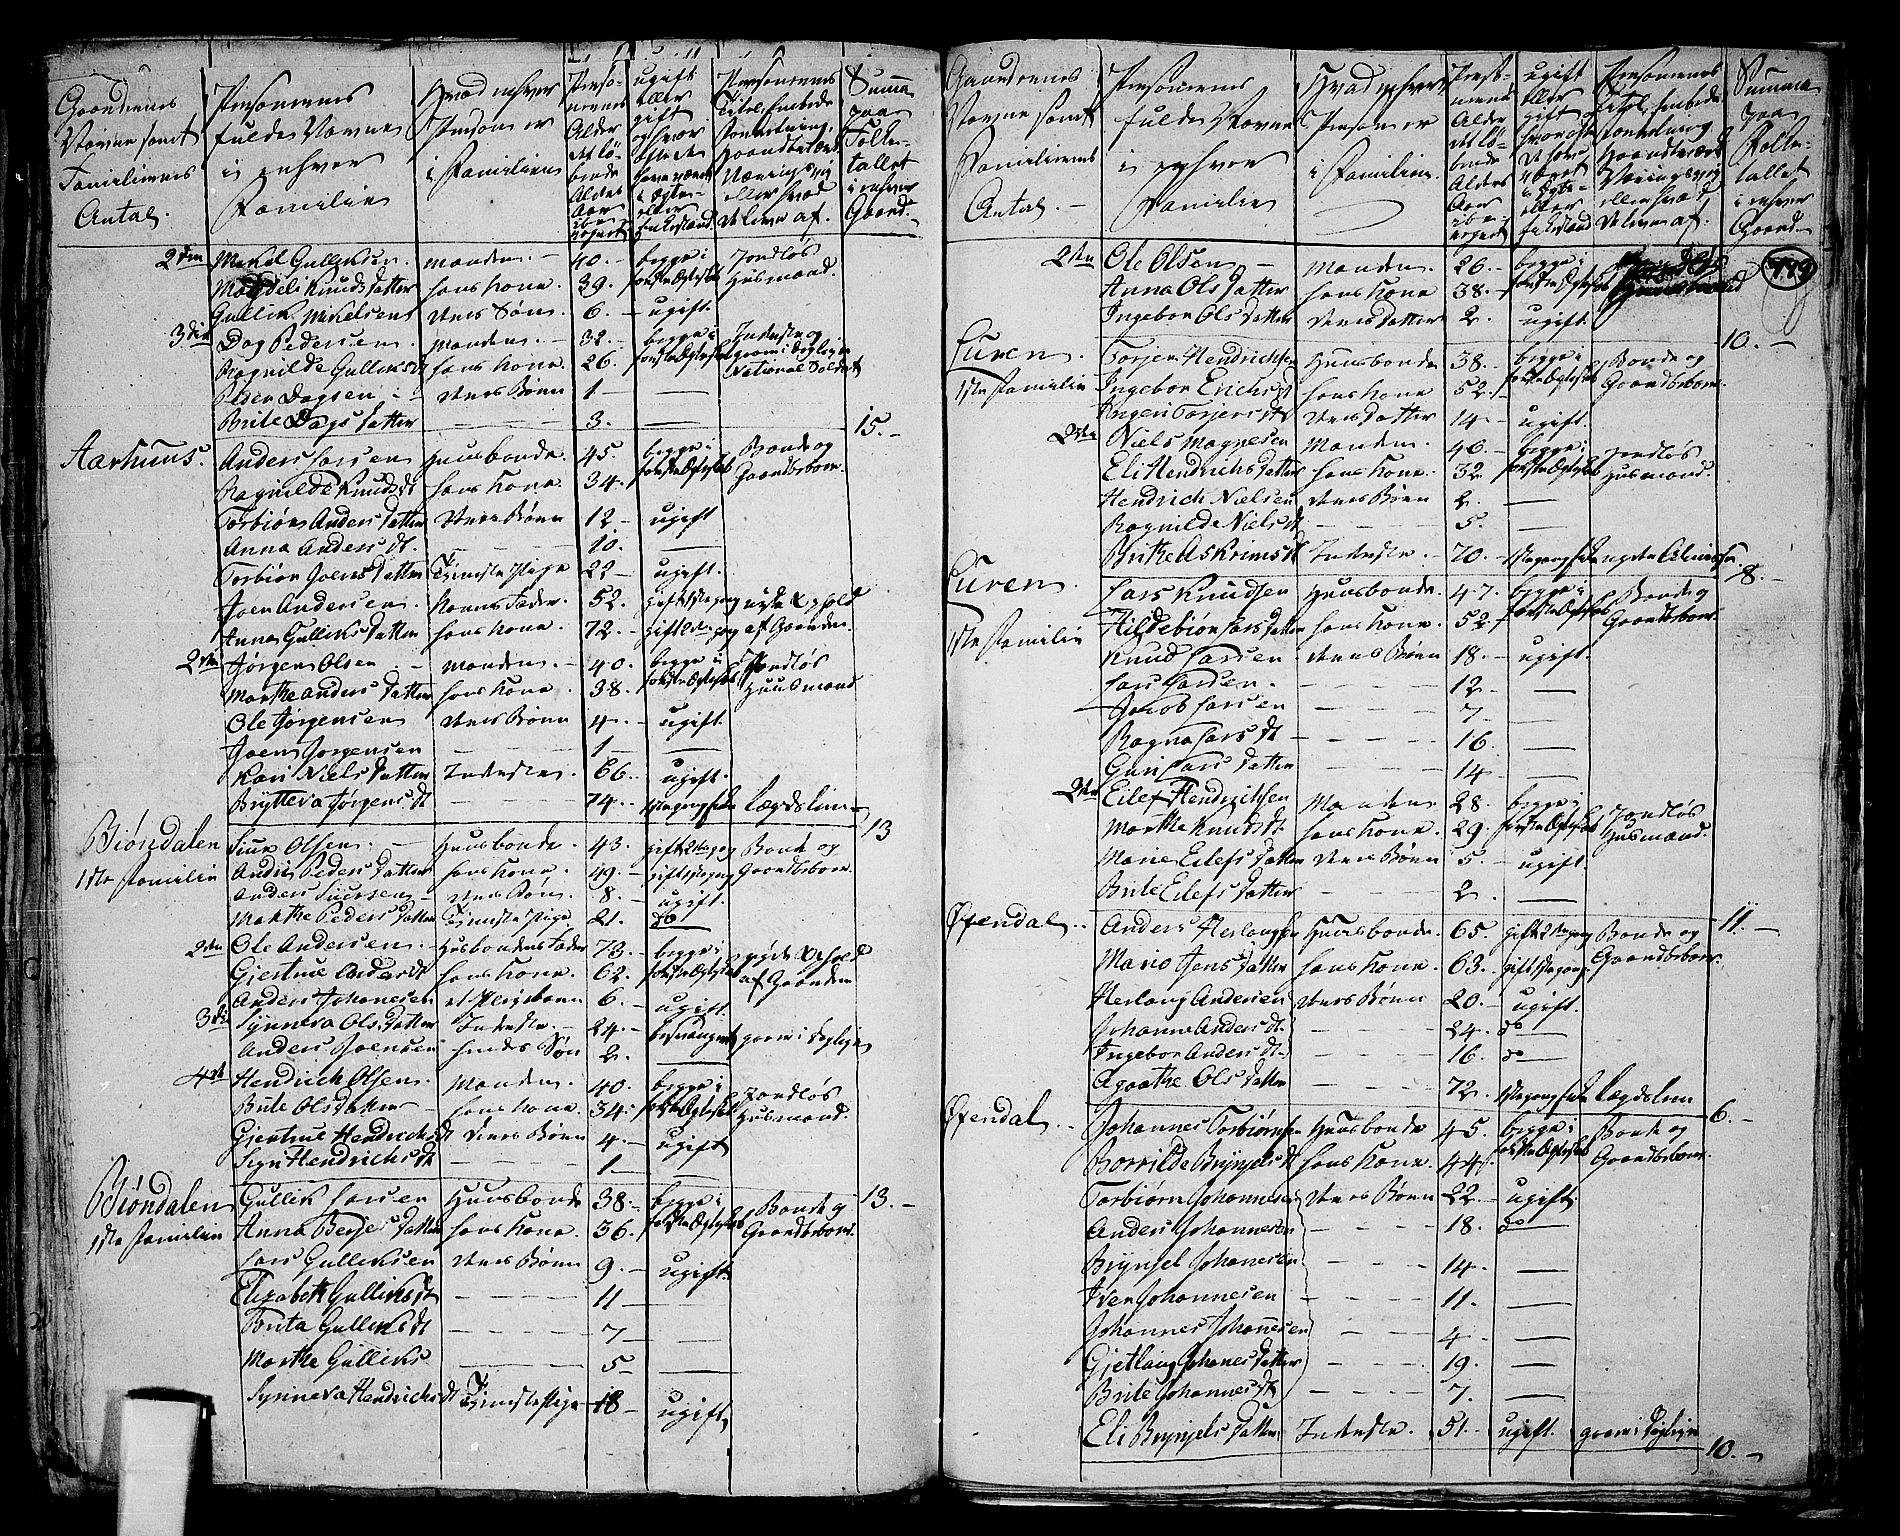 Gaardenes Navne samt Familiernes Antal.
Personernes fulde Navne i enhver Familie
Hvad enhver Person er i Familien
Personernes Alder det løbende Alders Aar iberegnet
ugift eller gift
Personernes Titel, Embede, Forretning, Haandværk, Næringsvej eller hvad de lever af.
Summa paa Folketallet i enhver Gaard.
2den Mikel Gulliksen. Manden. 40. begge i første Ægteskab Jordløs Husmand.
Knuds Datter hans Kone. 39.
Gullik Mikelsen deres Søn. 6. ugift.
3die Dag Pedersen. Manden. 32. begge i første Ægteskab Inderste og National Soldat
Ragnilde Gulliks dt hans Kone. 26.
Peder Dagsen deres Børn 1 —
Brite Dags Datter — 3. 15.
Aarhuus. Anders Larsen Huusbonde. 45. begge i første Ægteskab Bonde og Gaardbeboer.
Ragnilde Knuds dt hans Kone. 34.
Torbiør Anders Datter deres Børn 12 ugift
Anna Anders dt. — 10. —
Torbiør Joens Datter Tieneste Pige 22 ugift.
Joen Andersen. Konens Fader. 52. gift 1ste gang
Anna Gulliks Datter hans Kone. 72. gift 2den gang af Gaarden.
2den Jørgen Olsen Manden. 40. begge i første Ægteskab Jordløs Huusmand
Marthe Anders Datter hans Kone. 38.
Ole Jørgensen deres Børn 4. ugift
Joen Jørgensen — 1 —
Kari Niels Datter Inderste. 66. ugift.
Brytteva Jørgens dt — 74. Lægdslem 13
Biøndalen 1ste Familie Siur Olsen. Huusbonde. 43. gift 2den gang Bonde og Gaardbeboer.
Peders Datter hans Kone. 49.
Anders Siursen deres Søn. 8. ugift.
Marthe Peders Datter Tieneste Pige 21. do
2den Ole Andersen. Husbondens Fader 73. begge i første Ægteskab af Gaarden
Giertrue Anders dt hans Kone. 62.
Anders Johanesen et Pleiebarn 6. ugift.
3die Synneva Ols Datter Inderste. 24. besvangret
Anders Joensen hendes Søn 2.
4de Hendrich Olsen. Manden. 40. begge i første Ægteskab Jordløs Husmand.
Brite Ols Datter hans Kone. 34.
Giertrue Hendrichs dt deres Børn 4. ugift
Siri Hendrichs dt — 1
Biøndalen 1ste Familie Gullik Larsen Huusbonde 38. begge i første Ægteskab Bonde og Gaardbeboer. 13.
Anna Berges Datter hans Kone. 36.
Lars Gulliksen deres Børn 9. ugift.
Elizabeth Gulliks dt — 11
Gulliks dt — 7
Marthe Gulliks — 5
Synneva Hendrichs dt Tieneste Pige 18 ugift
Gaardenes Navne samt Familiernes Antal.
Personernes fulde Navne i enhver Familie
Hvad enhver Person er i Familien.
Summa paa Folketallet i enhver Gaard
2den Ole Olsen Manden. 26. begge i første Ægteskab
Anna Ols Datter hans Kone. 38.
Ingebor Ols Datter deres Datter 2. ugift. 10.
Luren. 1ste Familie Torjer Hendrichsen Huusbonde 38. begge i første Ægteskab Bonde og Gaardbeboer.
Ingebor Erichs dt hans Kone. 52.
Ingeri Torjers dt deres Datter 14 ugift.
2den Niels Magnesen Manden. 46. begge i første Ægteskab Jordløs Husmand.
Eli Hendrichs Datter hans Kone. 32
Hendrich Nielsen deres Børn 2. —
Ragnilde Niels dt — 5. —
Brithe dt Inderste. 70. 8.
Luren. 1ste Familie Lars Knudsen Huusbonde. 47. begge i første Ægteskab Bonde og Gaardbeboer.
Hildebiør Lars Datter hans Kone. 52.
Knud Larsen deres Børn 18. ugift.
Lars Larsen. — 12 —
Jacob Larsen — 7 —
Ragna Lars dt — 16 —
Guri Lars Datter — 14 —
2den Eilef Hendrichsen Manden 28. begge i første Ægteskab Jordløs Husmand.
Marthe Knuds dt. hans Kone. 29.
Marie Eilefs Datter deres Børn 5. ugift.
Brite Eilefs Datter — 2. —
Øfendal. Anders Herlaugsen Huusbonde. 65. gift 2den gang Bonde og Gaardbeboer. 11.
Jens Datter hans Kone. 63. gift 1ste gang.
Herlaug Andersen deres Børn 20. ugift
Johanne Anders dt. — 24. do
Ingebor Anders dt — 16. do
Agaathe Ols Datter — 72. Lægdslem
Øfendal. Johannes Torbiørnsen Huusbonde 45. begge i første Ægteskab Bonde og Gaardbeboer. 6.
Borrilde Brynjels dt hans Kone. 44.
Torbiørn Johannesen deres Børn 22. ugift.
Anders Johannesen — 18. do
Brynjel Johanesen — 14. —
Iver Johannesen — 11. —
Johannes Johanesen — 4. —
Gjetlaug Johanes Datter — 19. —
Brite Johannes dt — 7. —
Eli Brynjels Datter Inderste. 51. ugift.
10.